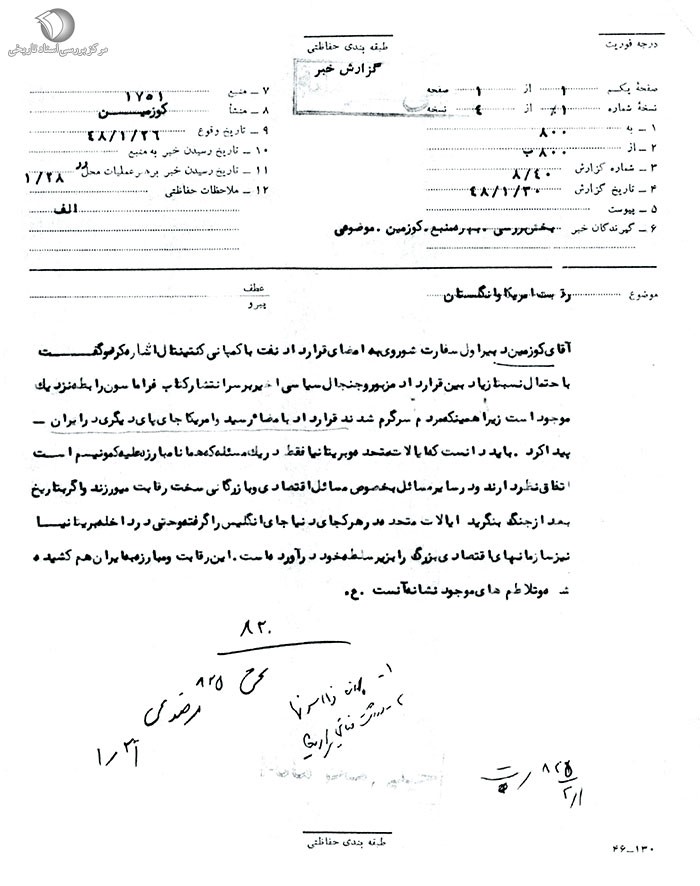 مرکز بررسی اسناد تاریخی
درجه فوریت
طبقه بندی حفاظتی
گزارش خبر
صفحهٔ یکم ۱ از ۱ صفحه
نسخهٔ شماره ۱ از ٤ نسخه
۱ ــ به ۸۰۰
۲ ــ از ۸۰۰ ب
۳ ــ شماره گزارش ۸/٤۰
۴ ــ تاریخ گزارش ٤۸/۱/۳۰
۵ ــ پیوست
۶ ــ گیرندگان خبر بخش بررسی ـ بهره منبع ـ کوزمین ـ موضوعی
۷ ــ منبع ۱۷۵۱
۸ ــ منشأ کوزمیــــن
۹ ــ تاریخ وقوع ٤۸/۱/۲۶
۱۰ ــ تاریخ رسیدن خبر به منبع
۱۱ ــ تاریخ رسیدن خبر به رهبر عملیات محل در ۱/۲۸
۱۲ ــ ملاحظات حفاظتی
الف
موضوع رقابت امریکا و انگلستان
عطف
پیرو
آقای کوزمین دبیر اول سفارت شوروی به امضای قرارداد نفت با کمپانی کنتیننتال اشاره کرد و گفت
با حتمال نسبتا زیاد بین قرارداد مزبور و جنجال سیاسی اخیر بر سر انتشار کتاب فراماسون رابطه نزدیک
موجود است زیرا همینکه مردم سرگرم شدند قرارداد با مضا رسید و امریکا جای پای دیگری در ایران ــ
پیدا کرد . باید دانست که ایالات متحده و بریتانیا فقط در یک مسئله که همانا مبارزه علیه کمونیسم است
اتفاق نظر دارند و در سایر مسائل بخصوص مسائل اقتصادی و بازرگانی سخت رقابت میورزند و اگر بتاریخ
بعد از جنگ بنگرید ایالات متحده در هر کجای دنیا جای انگلیس را گرفته و حتی در داخله بریتانیــا
نیز سازمانهای اقتصادی بزرگ را بزیر سلطه خود درآورده است . این رقابت و مبارزه به ایران هم کشیده
شده و تلاطم های موجود نشانه آنست . ع .
۸۲۰
۸۲۵
۱ــ
۸۲۵
طبقه بندی حفاظتی
۱۳۰ــ۴۶